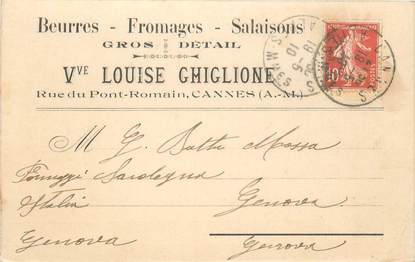 Beurres - Fromages - Salaisons
GROS DÉTAIL
Vve LOUISE GHIGLIONE
Rue du Pont-Romain, CANNES (A.-M.)
M G. Batta Massa
Formaggi Sardegna
Genova
Italia
Genova Genova